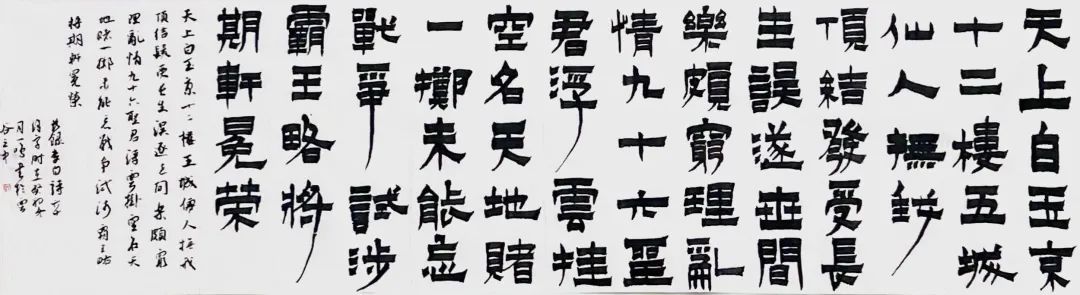 天上白玉京
十二樓五城
仙人撫我
頂結發受長
生誤逐世間
樂頗窮理亂
情九十六聖
君浮雲挂
空名天地賭
一擲未能忘
戰爭試涉
霸王略將
期軒冕榮
天上白玉京十二樓五城仙人撫我
頂結髮受長生誤逐世間樂頗窮
理亂情九十六聖君浮雲掛空名天
地賭一擲未能忘戰爭試涉霸王略
將期軒冕榮
李白詩